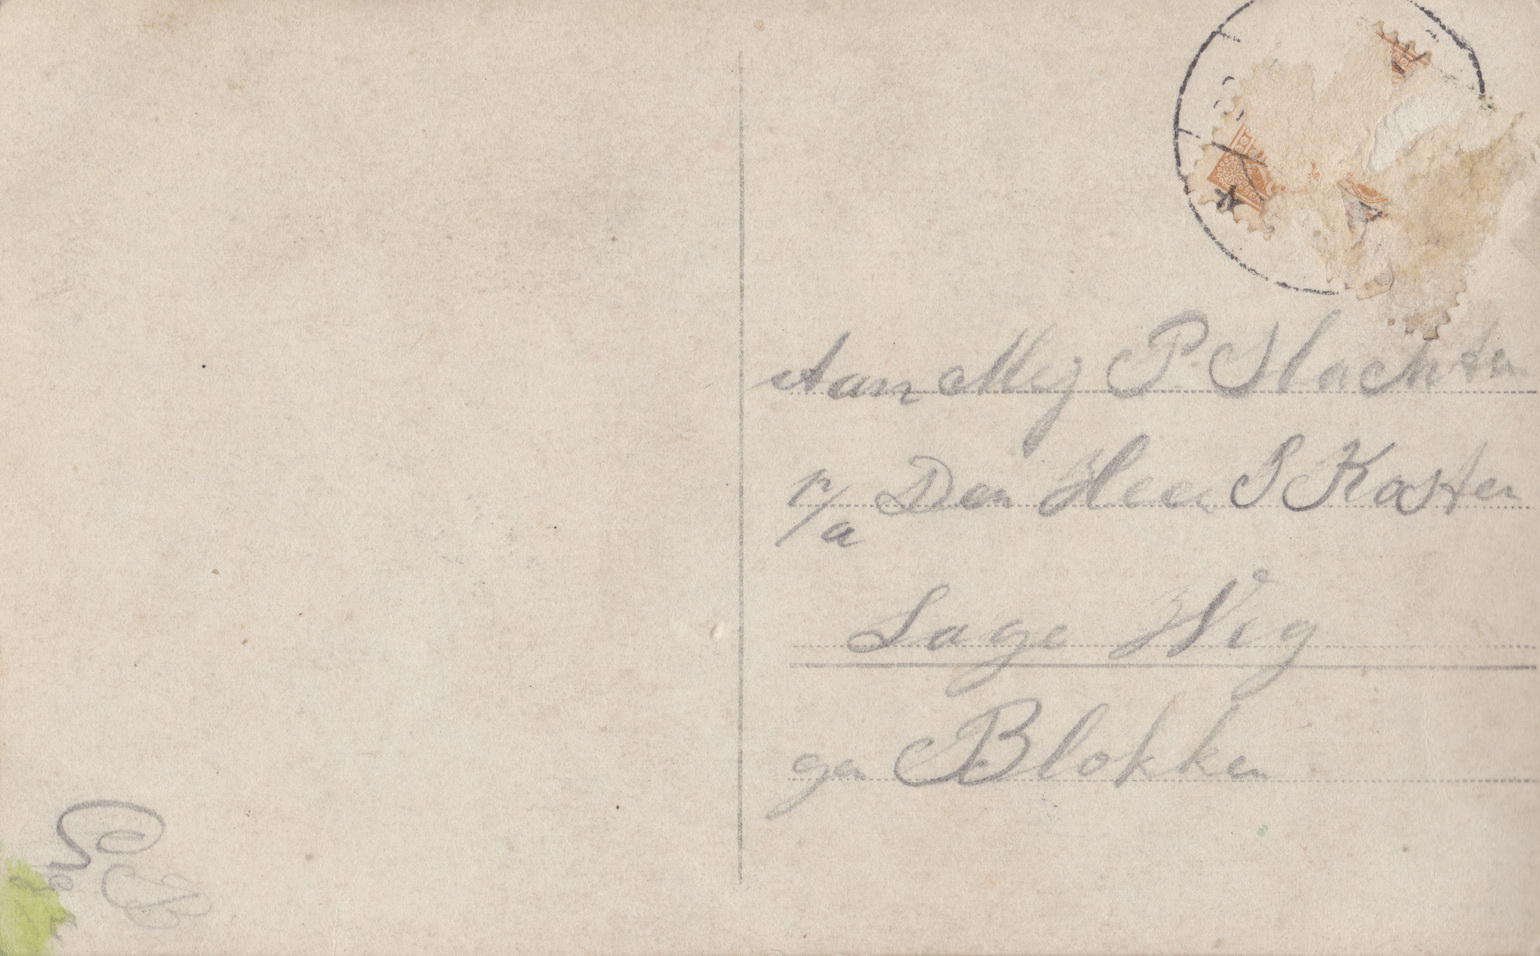 Aan Mej P Slachter
p/a Den Heer P Koster
Lage Weg
gen Blokker